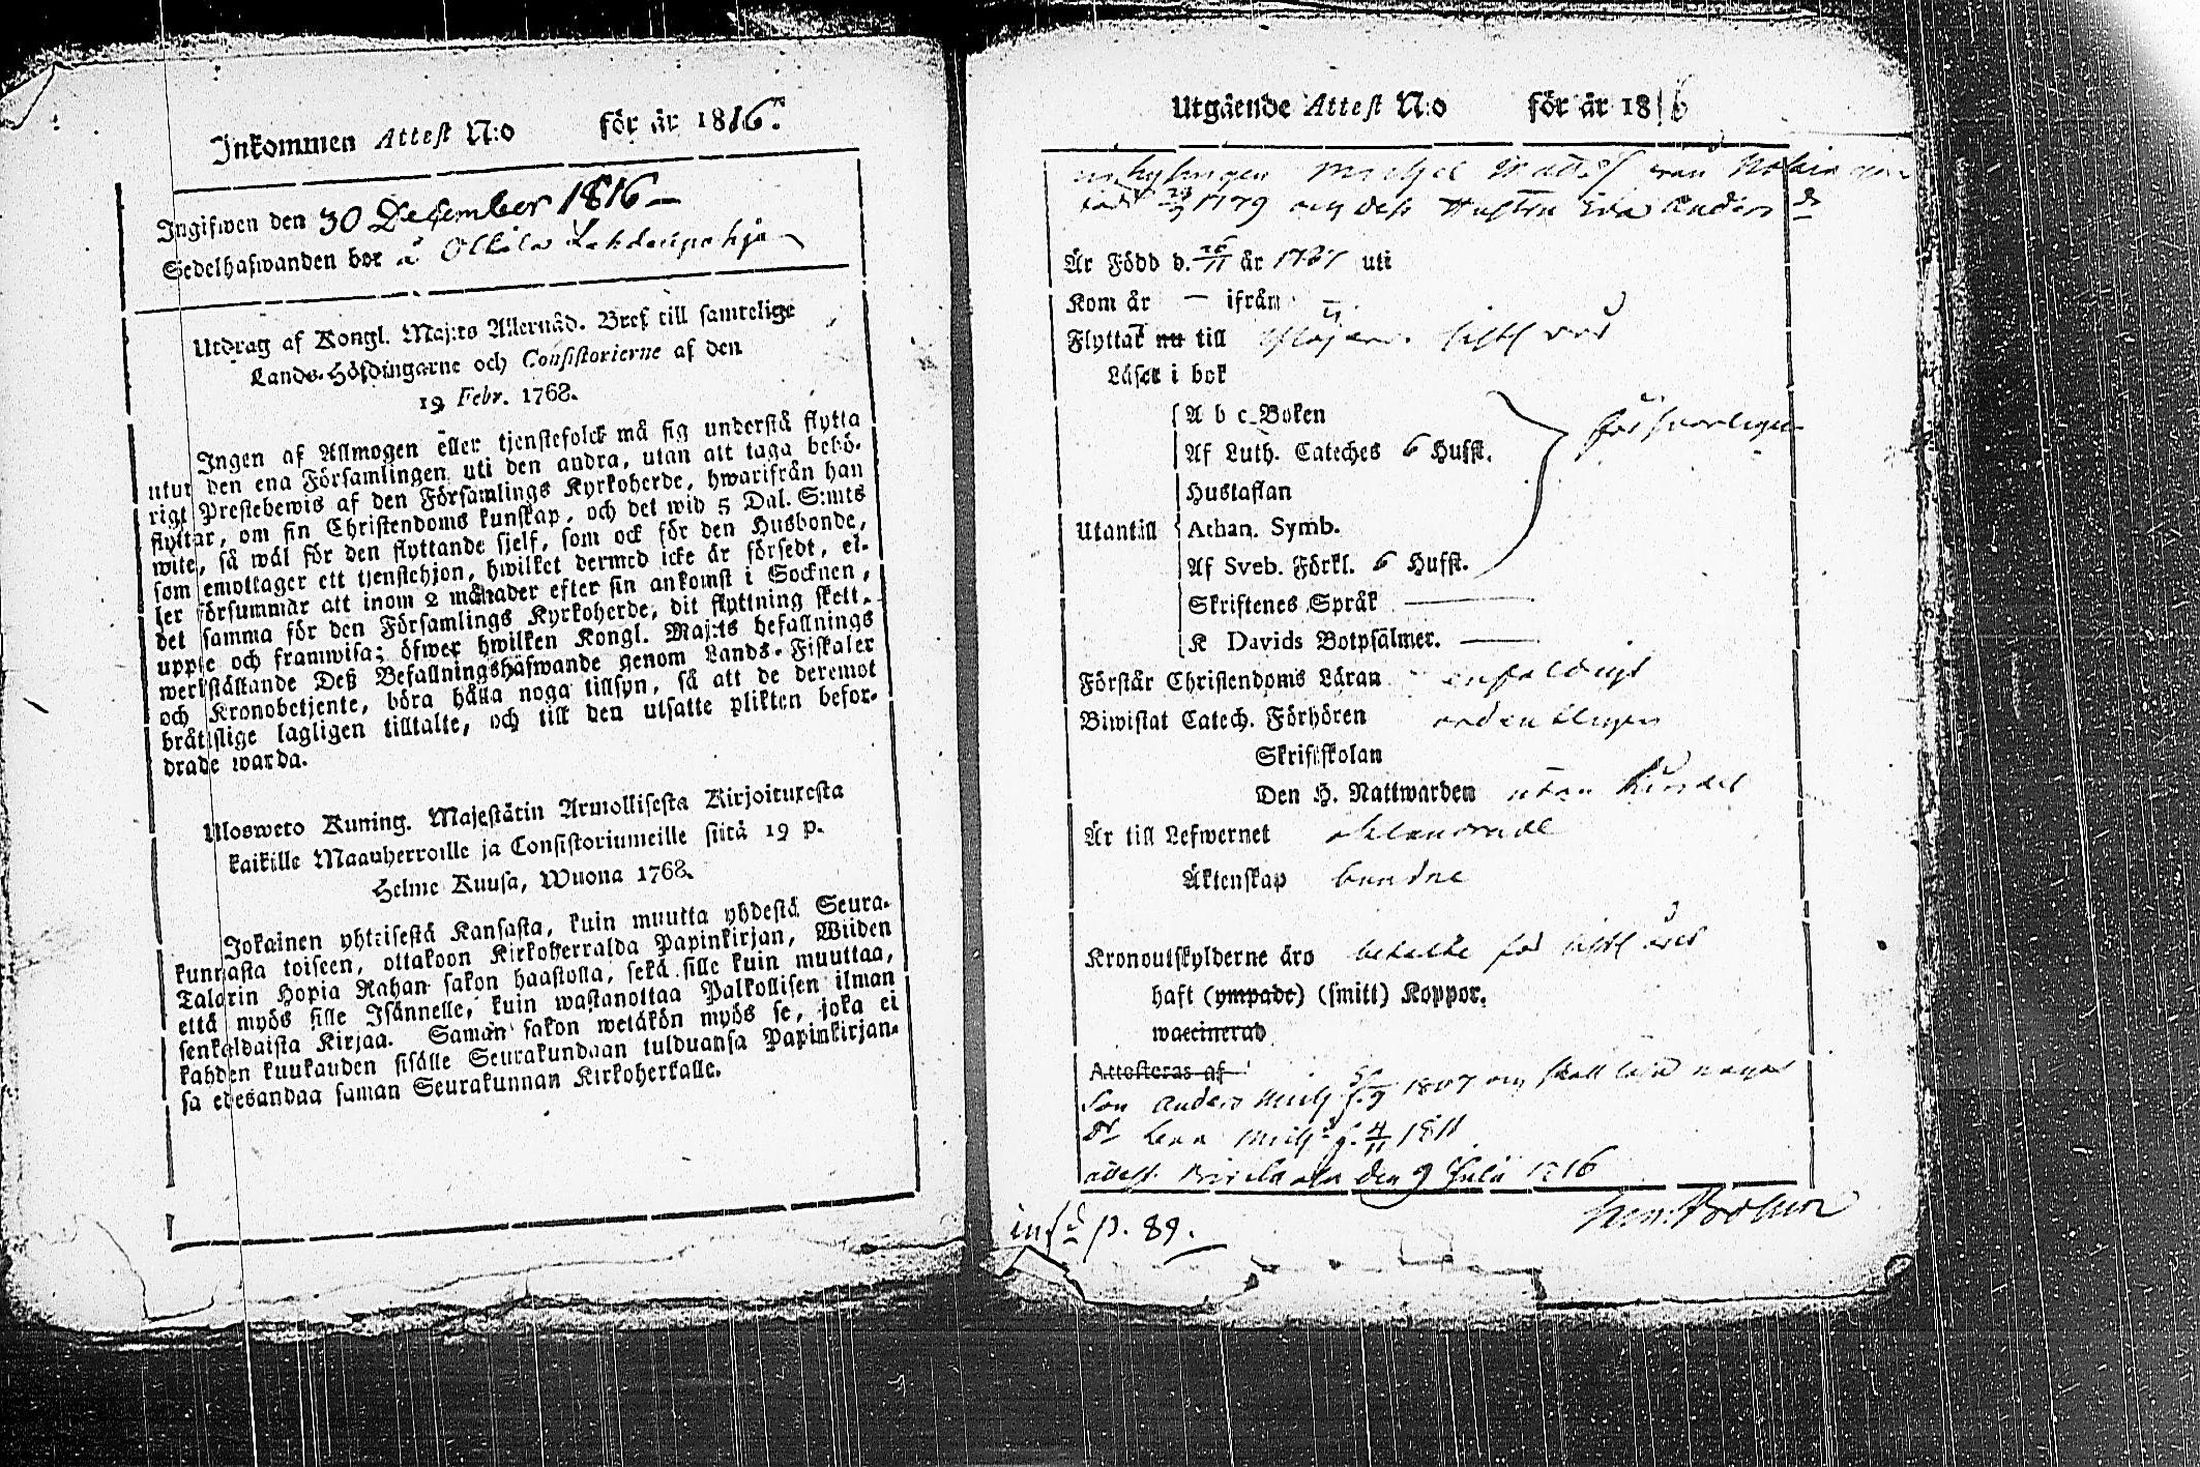 Inkommen Attest N:o för år 1816.
Ingifwen den 30 December 1816
Sedelhafwanden bor å Ollila Lahdenpohja
Utdrag af Kongl. Maj:ts Allernåd. Bref till samtelige
Lands-Höfdingarne och Consistorierne af den
19 Febr. 1768.
Ingen af Allmogen eller tjenstefolck må sig understå flytta
utur den ena Församlingen uti den andra, utan att taga behö-
rigt Prestebewis af den Församlings Kyrkoherde, hwarifrån han
flyttar, om sin Christendoms kunskap, och det wid 5 Dal. S:mts
wite, så wäl för den flyttande sjelf, som ock för den Husbonde,
som emottager ett tjenstehjon, hwilket dermed icke är försedt, el-
ler försummar att inom 2 månader efter sin ankomst i Socknen,
det samma för den Församlings Kyrkoherde, dit flyttning skett,
uppte och framwisa; öfwer hwilken Kongl. Maj:ts befallnings
werkställande Deß Befallningshafwande genom Lands-Fiskaler
och Kronobetjente, böra hålla noga tillsyn, så att de deremot
bråtslige lagligen tilltalte, och till den utsatte plikten befor-
drade warda.
Ulosweto Kuning. Majestätin Armollisesta Kirjoituxesta
kaikille Maanherroille ja Consistoriumeille siitä 19 p.
Helme Kuusa, Wuona 1768.
Jokainen yhteisestä Kansasta, kuin muutta yhdestä Seura-
kunnasta toiseen, ottakoon Kirkoherralda Papinkirjan, Wiiden
Talarin Hopia Rahan sakon haastolla, sekä sille kuin muuttaa,
että myös sille Isännelle, kuin wastanottaa Palkollisen ilman
senkaldaista Kirjaa. Saman sakon wetäkön myös se, joka ei
kahden kuukauden sisälle Seurakundaan tulduansa Papinkirjan-
sa edesandaa saman Seurakunnan Kirkoherralle.
Utgående Attest N:o för år 1816
Michel från
född 1779 och dess Hustru Eva Anders dr
Är Född d. 26/11 år 1787 uti
Kom år — ifrån
Flyttat nu till
Läser i bok
A b c Boken
Af Luth. Cateches 6 Hufst. försvarligen
Hustaflan
Utantill Athan. Symb.
Af Sveb. Förkl. 6 Hufst.
Skriftenes Språk —
K Davids Botpsälmer. —
Förstår Christendoms Läran enfaldigt
Biwistat Catech. Förhören ordentligen
Skriftskolan
Den H. Nattwarden utan hinder
Är till Lefwernet oklandrade
Äktenskap bundne
Kronoutskylderne äro betalte för sistl året
haft (ympade) (smitt) Koppor.
waccinerad
Attesteras af
Son Anders Mich 1807 och skall
dr Lena Mich f. 4/11 1811
den 9 Julii 1816
inf d p. 89.